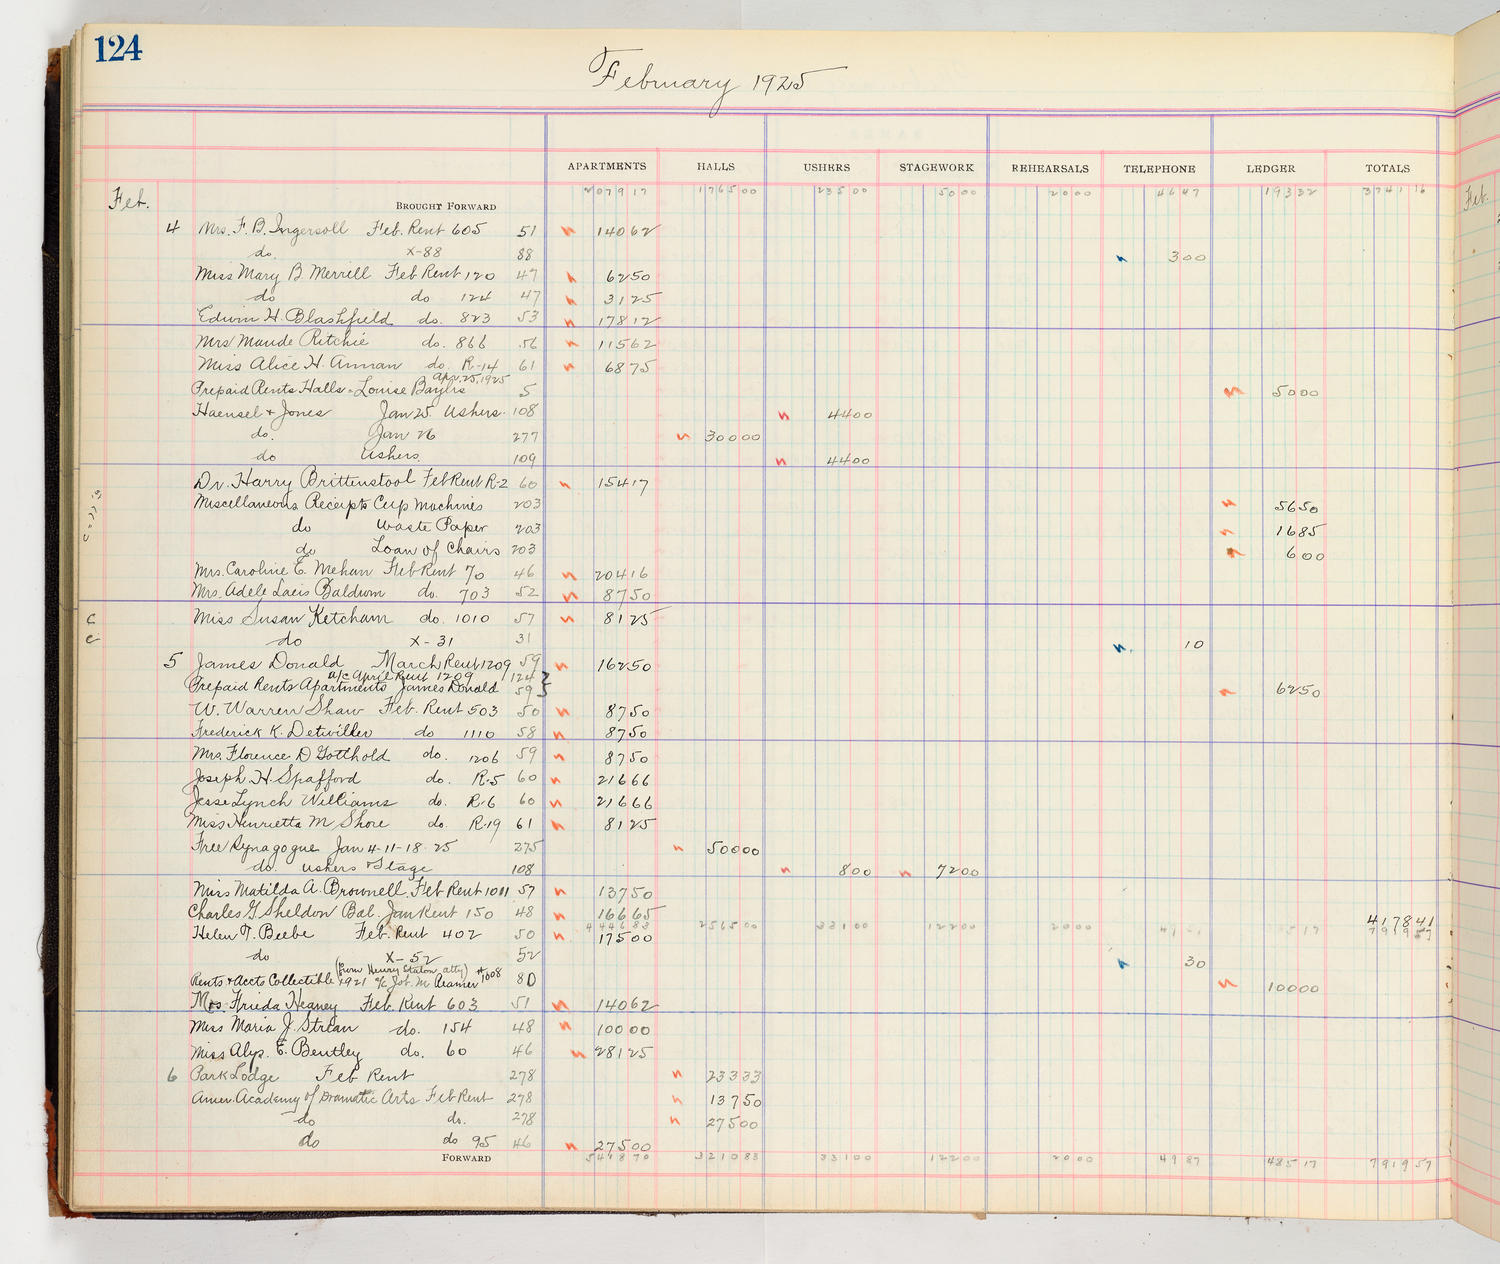 124
February 1925
APARTMENTS HALLS USHERS STAGEWORK REHEARSALS TELEPHONE LEDGER TOTALS
Feb. BROUGHT FORWARD 207917 176500 23500 5000 2000 4647 19332 374116
4 Mrs. F. B. Ingersoll Feb. Rent 605 51 14062
do. X-88 88 300
Miss Mary B Merrill Feb Rent 120 47 6250
do do 124 47 3125
Edwin H. Blashfield do. 823 53 17812
Mrs Maude Ritchie do. 866 56 11562
Miss Alice H. Annan do. R-14 61 6875
Apr. 25, 1925
Prepaid Rents Halls - Louise Baylis 5 5000
Haensel & Jones Jan 25 Ushers. 108 4400
do. Jan 26 277 30000
do Ushers. 109 4400
Dr. Harry Brittenstool Feb Rent R-2 60 15417
Miscellaneous Receipts Cup Machines 203 5650
do Waste Paper 203 1685
do Loan of Chairs 203 600
Mrs. Caroline E. Mehan Feb Rent 70 46 20416
Mrs. Adele Laeis Baldwin do. 703 52 8750
Miss Susan Ketcham do. 1010 57 8125
do X-31 31 10
5 James Donald March Rent 1209 59 16250
a/c April Rent 1209 124
Prepaid Rents Apartments James Donald 59 6250
W. Warren Shaw Feb. Rent 503 50 8750
Frederick K. Detwiller do 1110 58 8750
Mrs. Florence D Gotthold do. 1206 59 8750
Joseph H. Spafford do. R-5 60 21666
Jesse Lynch Williams do. R-6 60 21666
Miss Henrietta M Shore do. R-19 61 8125
Free Synagogue Jan 4-11-18-25 275 50000
do. Ushers & Stage 108 800 7200
Miss Matilda A. Brownell Feb Rent 1011 57 13750
Charles G Sheldon Bal. Jan Rent 150 48 16665
444683 256500 33100 12200 2000 417841
Helen T. Beebe Feb. Rent 402 50 17500
do X-52 52 30
(From Henry Staton atty) #1008
Rents & Accts Collectible 1921 a/c Jos. M Kramer 80 10000
Mrs. Frieda Heaney Feb. Rent 603 51 14062
Miss Maria J. Strean do. 154 48 10000
Miss Alys. E. Bentley do. 60 46 28125
6 Park Lodge Feb Rent 278 23333
Amer. Academy of Dramatic Arts Feb Rent 278 13750
do do. 278 27500
do do 95 46 27500
FORWARD 541870 321083 33100 12200 2000 4987 48517 791957
Feb.